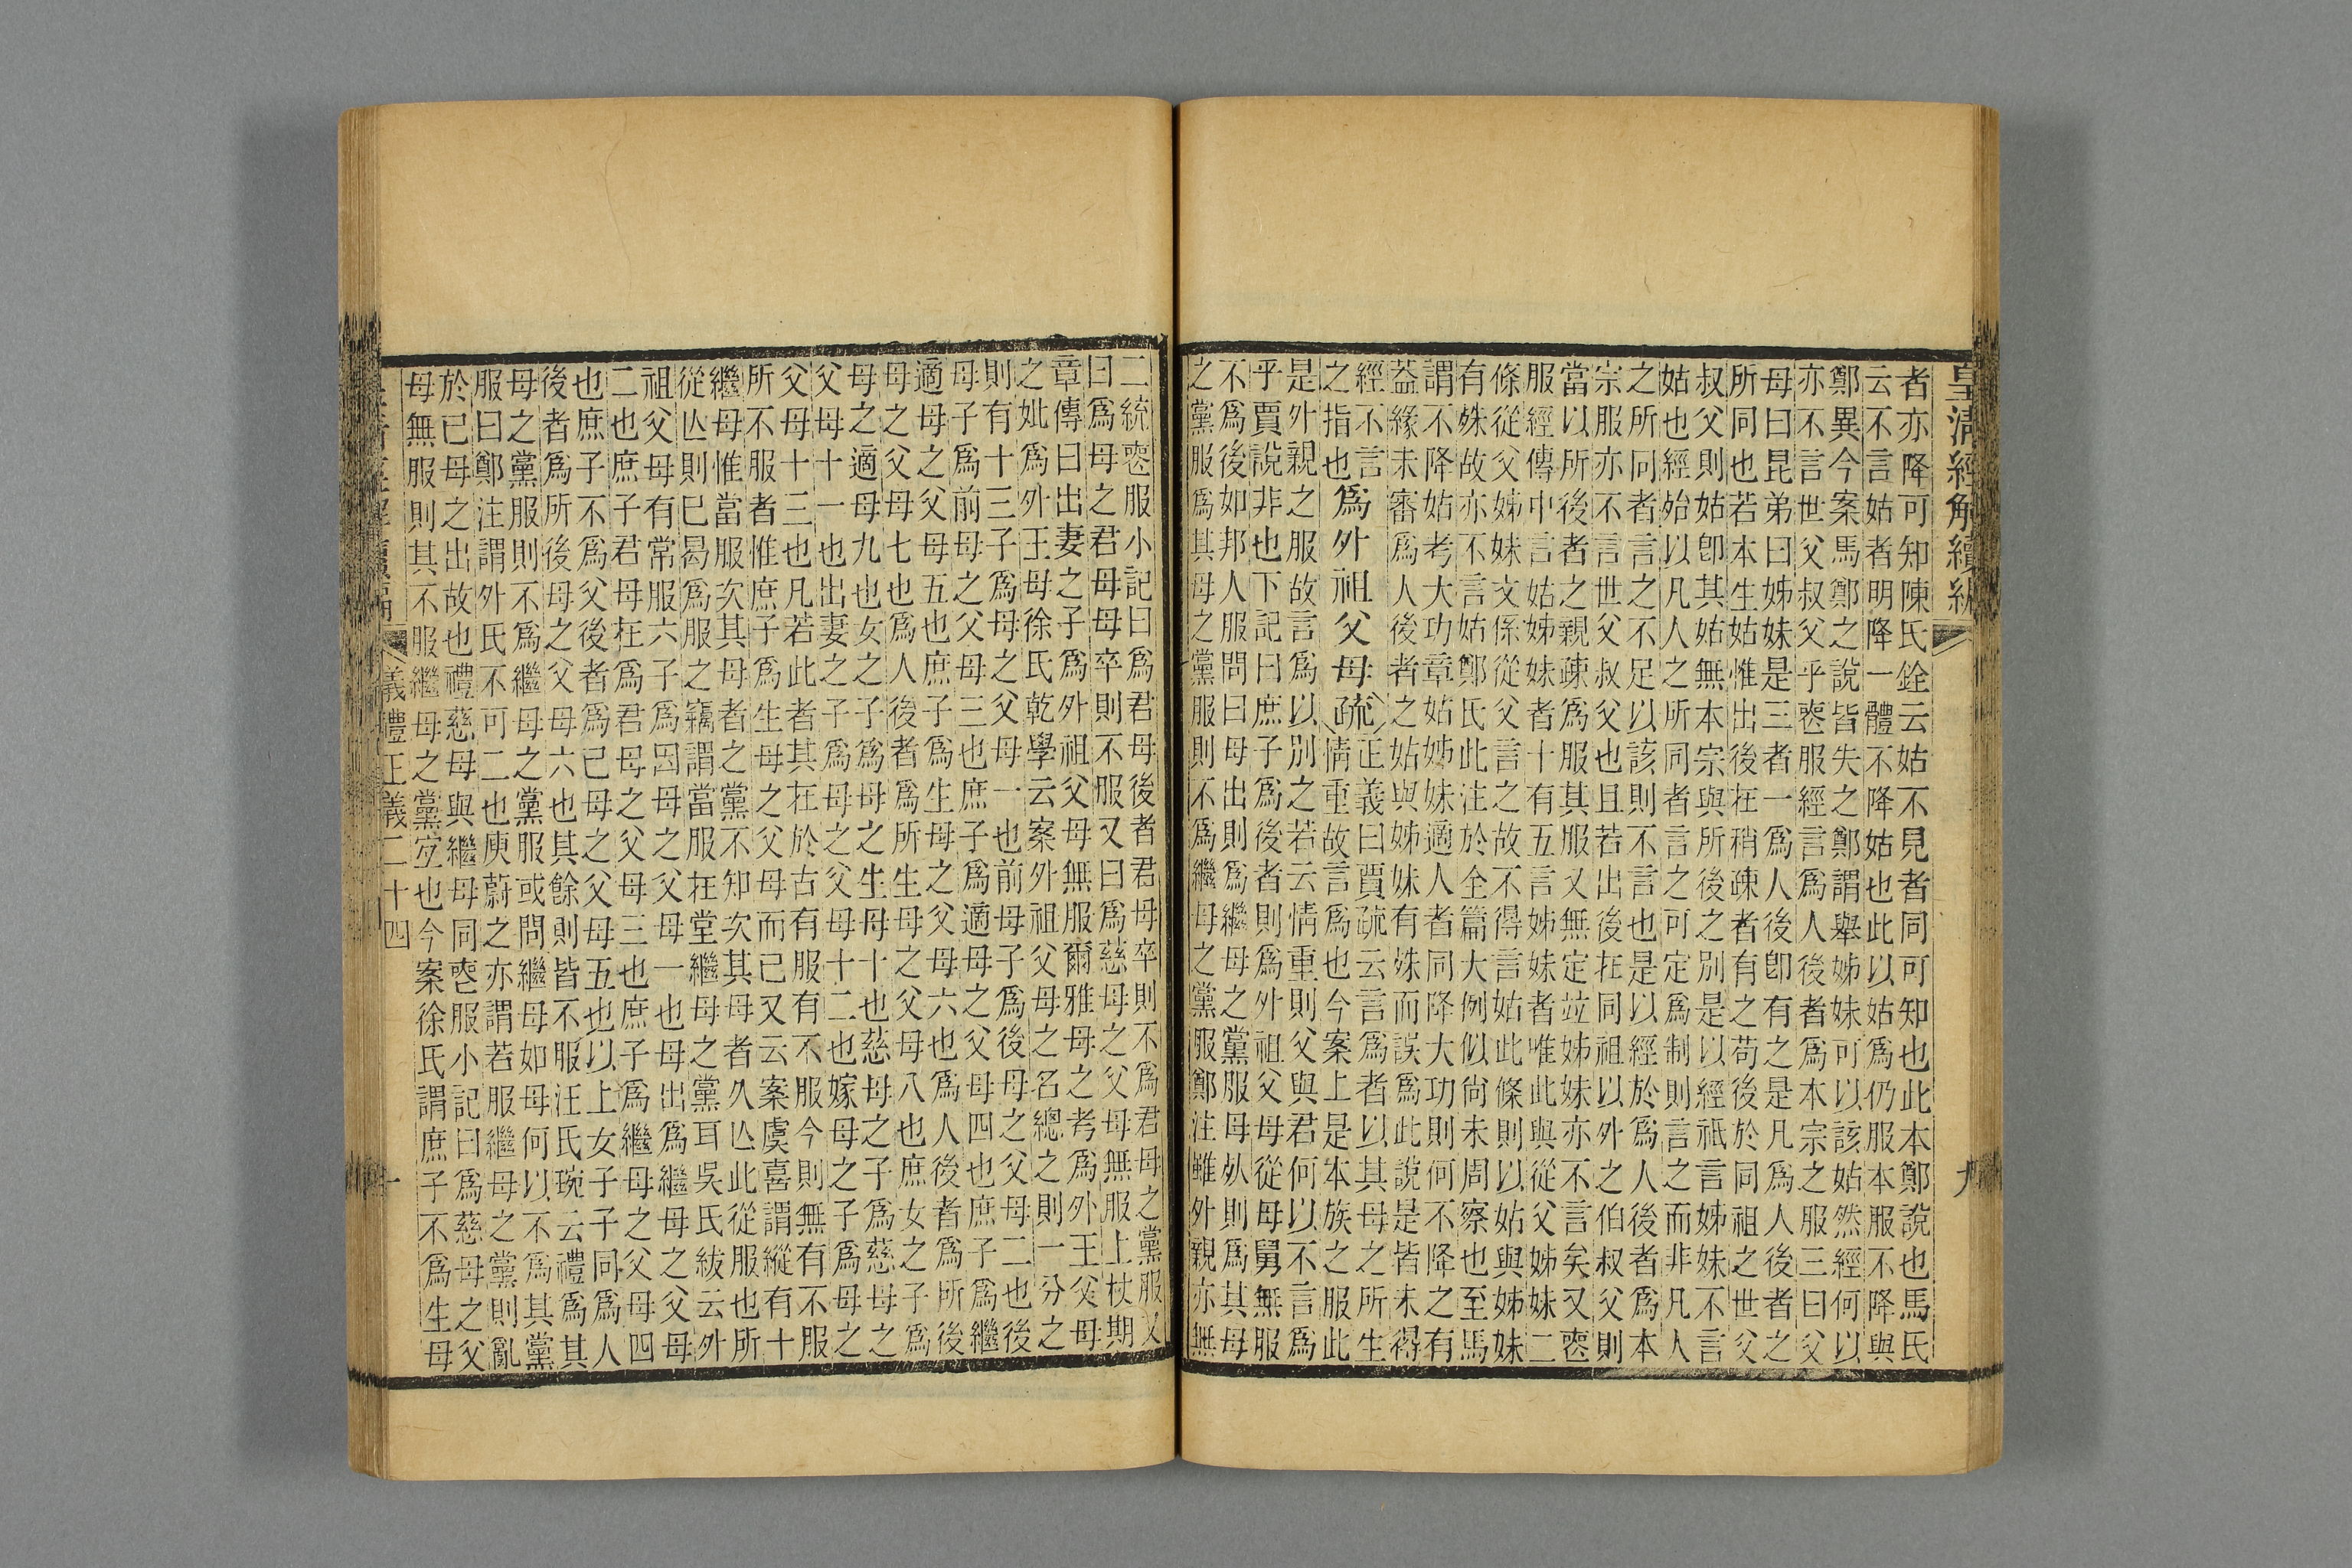 皇清經解續編
九
者亦降可知陳氏銓云姑不見者同可知也此本鄭說也馬氏
云不言姑者明降一體不降姑也此以姑爲仍服本服不降與
鄭異今案馬鄭之說皆失之鄭謂舉姊妹可以該姑然經何以
亦不言世父叔父乎喪服經言爲人後者爲本宗之服三曰父
母曰昆弟曰姊妹是三者一爲人後卽有之是凡爲人後者之
所同也若本生姑惟出後在稍疎者有之苟後於同祖之世父
叔父則姑卽其姑無本宗與所後之別是以經祇言姊妹不言
姑也經始以凡人之所同者言之可定爲制則言之而非凡人
之所同者言之不足以該則不言也是以經於爲人後者爲本
宗服亦不言世父叔父也且若出後在同祖以外之伯叔父則
當以所後者之親疎爲服其服又無定竝姊妹亦不言矣又喪
服經傳中言姑姊妹者十有五言姊妹者唯此與從父姊妹二
條從父姊妹文係從父言之故不得言姑此條則以姑與姊妹
有姝故亦不言姑鄭氏此注於全篇大例似尙未周察也至馬
謂不降姑考大功章姑姊妹適人者同降大功則何不降之有
葢緣未審爲人後者之姑與姊妹有姝而誤爲此說是皆未得
經不言
之指也
爲外祖父母疏
正義曰賈疏云言爲者以其母之所生
情重故言爲也今案上是本族之服此
是外親之服故言爲以別之若云情重則父與君何以不言爲
乎賈說非也下記曰庶子爲後者則爲外祖父母從母舅無服
不爲後如邦人服問曰母出則爲繼母之黨服母死則爲其母
之黨服爲其母之黨服則不爲繼母之黨服鄭注雖外親亦無
二統喪服小記曰爲君母後者君母卒則不爲君母之黨服又
曰爲母之君母母卒則不服又曰爲慈母之父母無服上杖期
章傳曰出妻之子爲外祖父母無服爾雅母之考爲外王父母
之妣爲外王母徐氏乾學云案外祖父母之名總之則一分之
則有十三子爲母之父母一也前母子爲後母之父母二也後
母子爲前母之父母三也庶子爲適母之父母四也庶子爲繼
適母之父母五也庶子爲生母之父母六也爲人後者爲所後
母之父母七也爲人後者爲所生母之父母八也庶女之子爲
母之適母九也女之子爲母之生母十也慈母之子爲慈母之
父母十一也出妻之子爲母之父母十二也嫁母之子爲母之
父母十三也凡若此者其在於古有服有不服今則無有不服
所不服者惟庶子爲生母之父母而已又云案虞喜謂縱有十
繼母惟當服次其母者之黨不知次其母者久亾此從服也所
從亾則已曷爲服之竊謂當服在堂繼母之黨耳吳氏紱云外
祖父母有常服六子爲因母之父母一也母出爲繼母之父母
二也庶子君母在爲君母之父母三也庶子爲繼母之父母四
也庶子不爲父後者爲己母之父母五也以上女子子同爲人
後者爲所後母之父母六也其餘則皆不服汪氏琬云禮爲其
母之黨服則不爲繼母之黨服或問繼母如母何以不爲其黨
服曰鄭注謂外氏不可二也庾蔚之亦謂若服繼母之黨則亂
於已母之出故也禮慈母與繼母同喪服小記曰爲慈母之父
母無服則其不服繼母之黨宐也今案徐氏謂庶子不爲生母
儀禮正義二十四
十